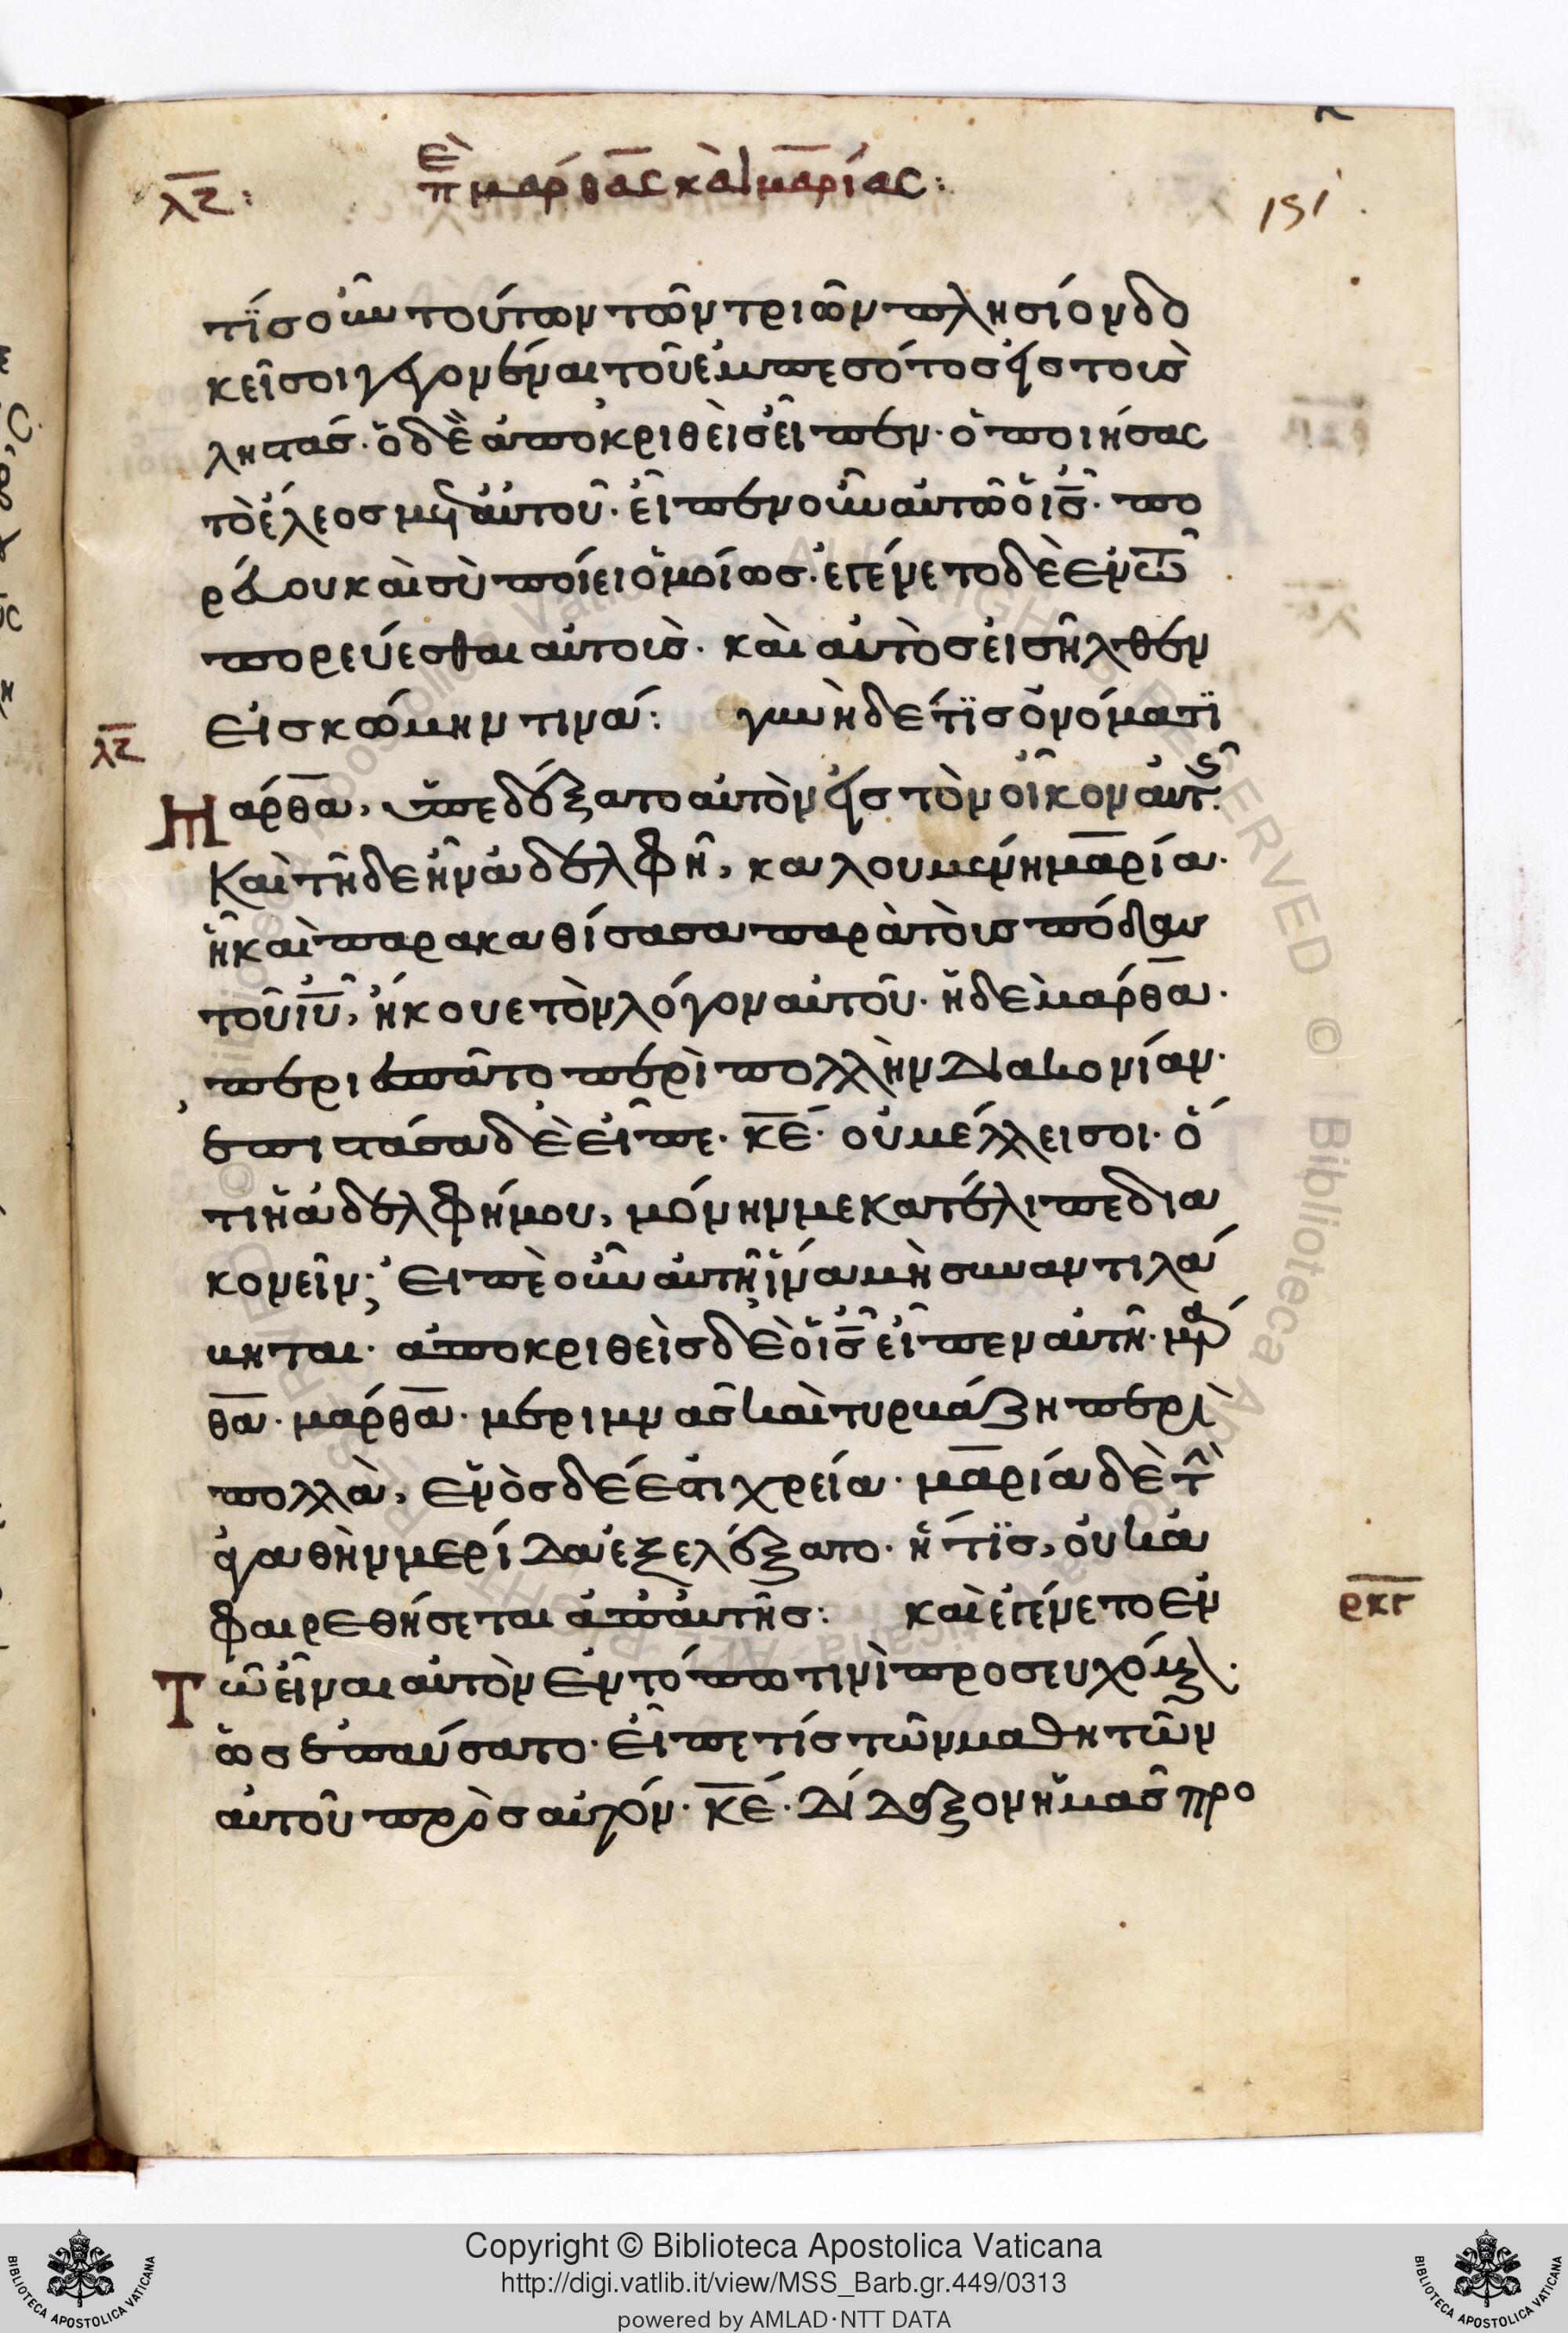 λζ: περὶ μάρθας καὶ μαρίας:
151
τίς οὖν τούτων τῶν τριῶν πλησίον δο
κεῖ σοι γεγονέναι τοῦ ἐμπεσόντος εἰς τοὺς
ληστάς. ὁ δὲ ἀποκριθεὶς εἶπεν. ὁ ποιήσας
τὸ ἔλεος μετ' αὐτοῦ. εἶπεν οὖν αὐτῶ ὁ ι̅ς̅. πο
ρεύου καὶ σὺ ποίει ὁμοίως. ἐγένετο δὲ ἐν τῶ
πορεύεσθαι αὐτοὺς. καὶ αὐτὸς εἰσῆλθεν
εἰς κώμην τινά: γυνὴ δέ τϊς ὀνόματϊ
λζ
Μάρθα, ὑπεδέξατο αὐτὸν εἰς τὸν οἶκον αὐτῆς.
Καὶ τῆδε ἦν ἀδελφὴ, καλουμένη μαρία.
ἣ καὶ παρακαθίσασα παρὰ τοὺς πόδας
τοῦ ι̅υ̅, ἤκουε τὸν λόγον αὐτοῦ. ἡ δὲ μάρθα.
περιεσπᾶτο περὶ πολλὴν διακονίαν.
ἐπιστάσα δὲ εἶπε. κ̅ε̅. οὐ μέλλει σοι. ὅ
τι ἡ ἀδελφή μου, μόνην με κατέλιπε δια
κονεῖν; εἰπὲ οὖν αὐτῆ ἵνα μὴ συναντιλά
βηται. ἀποκριθεὶς δὲ ὁ ι̅ς̅ εἶπεν αὐτῆ. μάρ
θα. μάρθα. μεριμνᾶς καὶ τυρβάζη περὶ
πολλὰ, ἑνὸς δέ ἐστι χρεία. μαρία δὲ τὴν
ἀγαθὴν μερίδα ἐξελέξατο. ἥτϊς, οὐκ ἀ
φαιρεθήσεται ἀπ' αὐτῆς: καὶ ἐγένετο ἐν
ρκγ
Τῶ εἶναι αὐτὸν ἐν τόπω τινὶ προσευχόμενον.
ὡς ἐπαύσατο. εἶπε τίς τῶν μαθητῶν
αὐτοῦ πρὸς αὐτόν. κ̅ε̅. δίδαξον ἡμᾶς προ
Copyright © Biblioteca Apostolica Vaticana
http://digi.vatlib.it/view/MSS_Barb.gr.449/0313
powered by AMLAD·NTT DATA